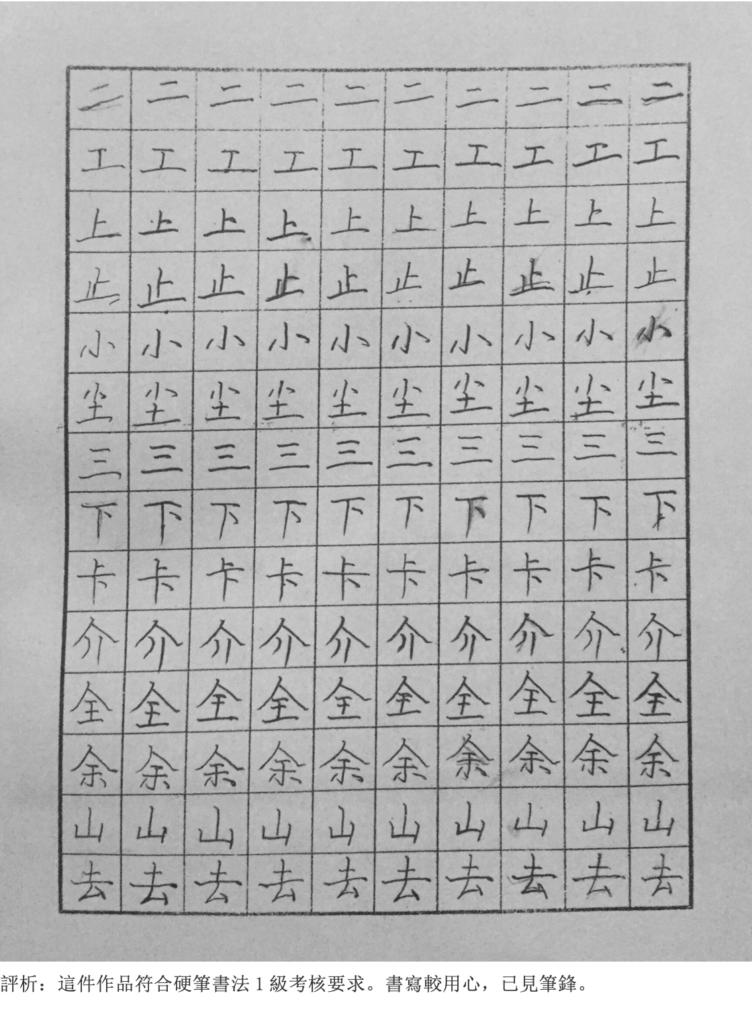 二 二 二 二 二 二 二 二 二 二
工 工 工 工 工 工 工 工 工 工
上 上 上 上 上 上 上 上 上 上
止 止 止 止 止 止 止 止 止 止
小 小 小 小 小 小 小 小 小 小
尘 尘 尘 尘 尘 尘 尘 尘 尘 尘
三 三 三 三 三 三 三 三 三 三
下 下 下 下 下 下 下 下 下 下
卡 卡 卡 卡 卡 卡 卡 卡 卡 卡
介 介 介 介 介 介 介 介 介 介
全 全 全 全 全 全 全 全 全 全
余 余 余 余 余 余 余 余 余 余
山 山 山 山 山 山 山 山 山 山
去 去 去 去 去 去 去 去 去 去
評析：這件作品符合硬筆書法1級考核要求。書寫較用心，已見筆鋒。